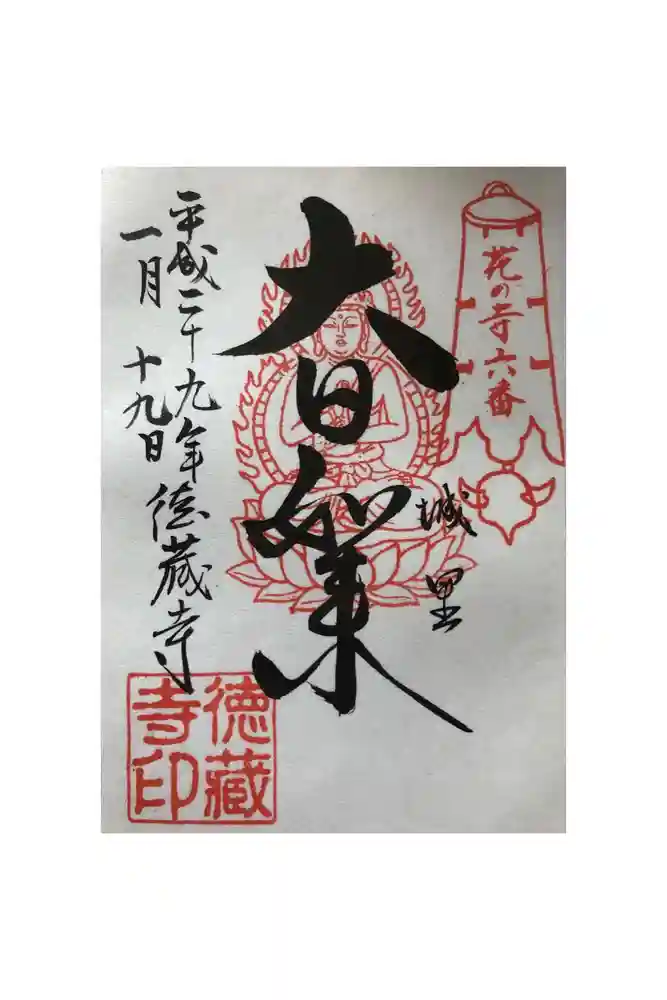 花の寺六番
城里
大日如来
平成二十九年徳蔵寺
一月十九日
徳蔵
寺印